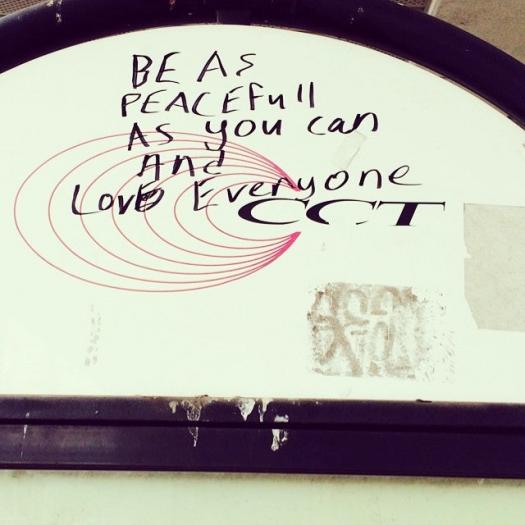 BE AS
PEACEfull
AS you can
And
Love Everyone
CCT